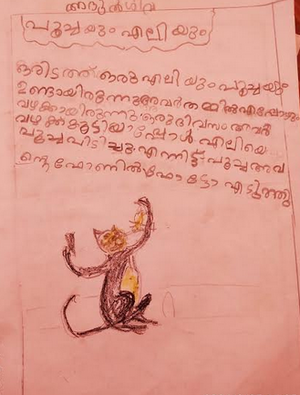 പൂച്ചയും എലിയും
ഒരിടത്ത് ഒരു എലിയും പൂച്ചയും
ഉണ്ടായിരുന്നു അവർ തമ്മിൽ എപ്പോഴും
വഴക്കായിരുന്നു ഒരു ദിവസം അവർ
വഴക്ക് കൂട്ടിയപ്പോൾ എലിയെ
പൂച്ച പിടിച്ചു എന്നിട്ട് പൂച്ച അവ
ന്റെ ഫോണിൽ ഫോട്ടോ എടുത്തു